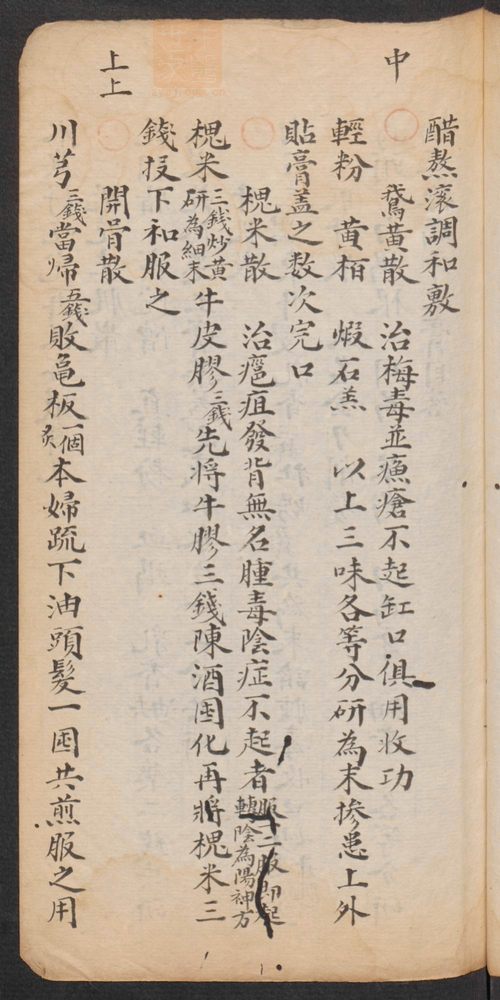 醋熬滚調和敷
中
鵞黃散　治梅毒並瘰瘡不起缸口俱用收功
輕粉　黄栢　煆石羔　以上三味各等分研為末摻患上外
貼膏盖之数次完口
槐米散　治癰疽發背無名腫毒陰症不起者服一二服即起轉陰為陽神方
槐米三錢炒黄研為細末牛皮膠三錢先將牛膠三錢陳酒囤化再將槐米三
錢投下和服之
上上
開骨散
川芎三錢當㱕五錢敗亀板一個炙本婦疏下油頭髮一囤共煎服之用